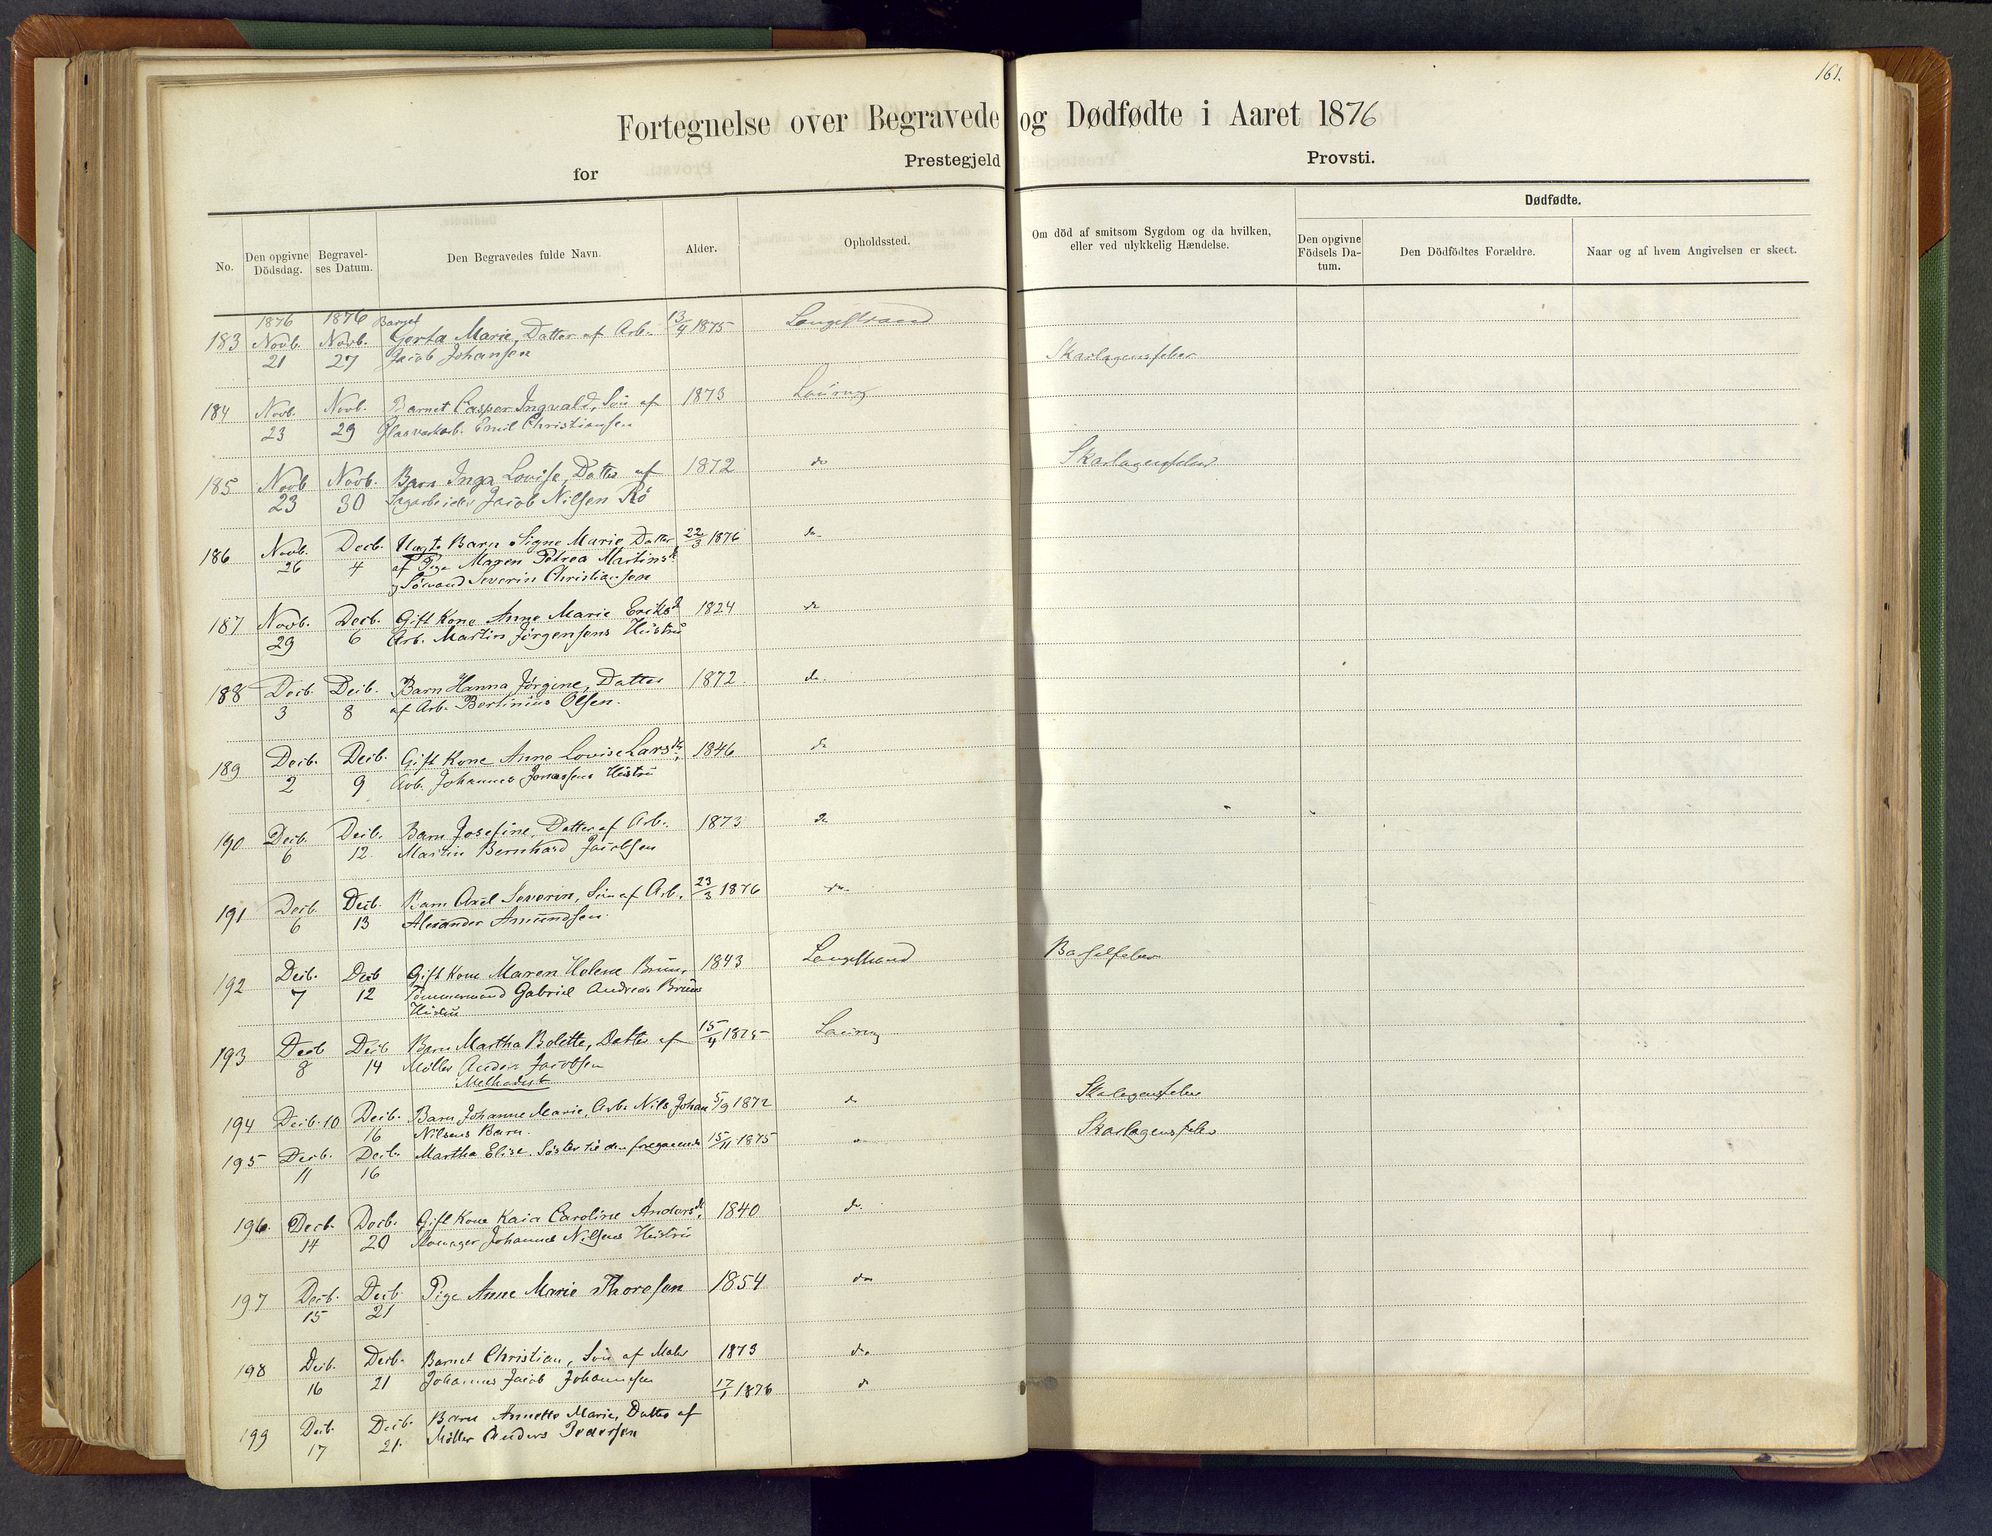 161.
Fortegnelse over Begravede og Dødfødte i Aaret 1876
for Prestegjeld Provsti.
No. Den opgivne Dödsdag. Begravelses Datum. Den Begravedes fulde Navn. Alder. Opholdssted. Om död af smitsom Sygdom og da hvilken, eller ved ulykkelig Hændelse. Dødfødte.
Den opgivne Födsels Datum. Den Dödfödtes Forældre. Naar og af hvem Angivelsen er skeet.
1876 1876 Barnet
183 Novb. Novb. Gerta Marie, Datter af Arb. 13/4 1875 Langestrand
21 27 Jacob Johansen Skarlagensfeber
184 Novb. Novb. Barnet Casper Ingvald, Søn af 1873 Laurvig
23 29 Glasværkarb. Emil Christiansen
185 Novb Novb. Barn Inga Lovise, Datter af 1872 do Skarlagensfeber
23 30 Sagarbeider Jacob Nilsen Rø
186 Novb. Decb. Uægte Barn Signe Marie Datter 22/3 1876 do
26 4 af Pige Maren Petrea Martinsd.
og Sømand Severin Christiansen
187 Novb. Decb. Gift Kone Anne Marie Eriksd. 1824 do
29 6 Arb. Martin Jørgensens Hustru
188 Decb. Decb. Barn Hanna Jørgine, Datter 1872 do
3 8 af Arb. Bertinius Olsen.
189 Decb. Decb. Gift Kone Anne Lovise Larsd. 1846 do
2 9 Arb. Johannes Jonassens Hustru
190 Decb. Decb. Barn Josefine, Datter af Arb. 1873 do
6 12. Martin Bernhard Jacobsen
191 Decb. Decb. Barn Axel Severin, Søn af Arb. 23/3 1876 do
6 13 Alexander Amundsen.
192 Decb. Decb Gift Kone Maren Helene Bruun, 1843 Langestrand Barselfeber
7 12 Tømmermand Gabriel Andreas Bruuns
Hustru
193 Decb Decb Barn Martha Bolette, Datter af 15/4 1875 Laurvig
8 14 Møller Anders Jacobsen
Methodist
194 Decb. 10 Decb. Barn Johanne Marie, Arb. Nils Johan 5/9 1872 do Skarlagensfeber
16 Nilsens Barn.
195 Decb. Decb. Martha Elise. Søster til den foregaaende 15/11 1875 " Skarlagensfeber
11 16
196. Decb. Decb. Gift Kone Kaia Caroline Andersd. 1840 do.
14 20 Johannes Nilsens Hustru
197 Decb. Decb. Pige Anne Marie Thoresen 1854 do
15 21
198 Decb. Decb. Barnet Christian, Søn af Maler 1873 do.
16 21 Johannes Jacob Johannesen
17/1 1876 do
199 Decb. Decb. Barn Annette Marie, Datter af
17 21. Møller Anders Pedersen